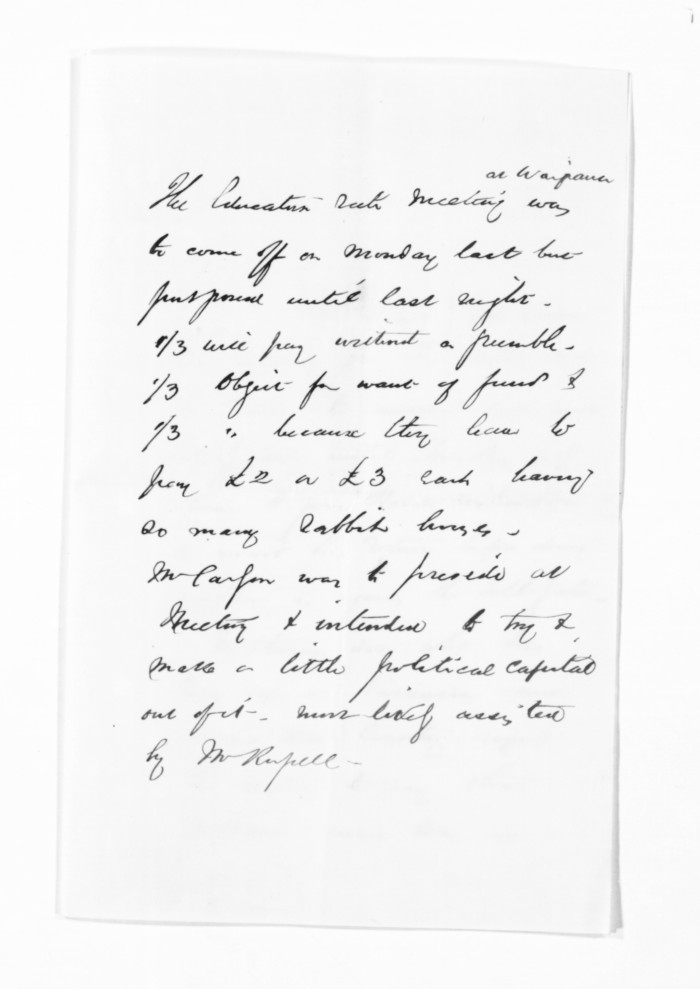 at Waipawa
The Education rate Meeting was
to come off on Monday last but
postponed until last night -
1/3 will pay without a grumble -
1/3 Object for want of funds &
1/3 " because they have to
pay £2 or £3 each having
so many rabbit hutches -
Mr Carlyon was to preside at
Meeting & intended to try &
make a little political capital
out of it - most likely assisted
by Mr Russell -